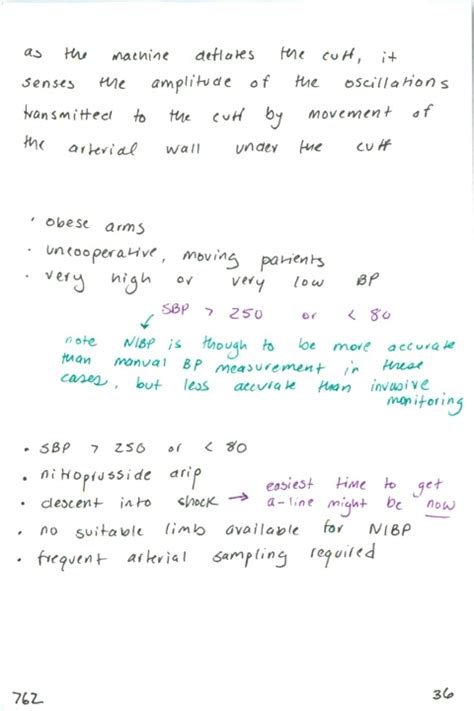 as the machine deflates the cuff, it
senses the amplitude of the oscillations
transmitted to the cuff by movement of
the arterial wall under the cuff
· obese arms
· uncooperative, moving patients
· very high or very low BP
SBP > 250 or < 80
note NIBP is though to be more accurate
than manual BP measurement in these
cases, but less accurate than invasive
monitoring
• SBP > 250 or < 80
• nitroprusside drip
• descent into shock → easiest time to get
a-line might be now
• no suitable limb available for NIBP
• frequent arterial sampling required
762
36